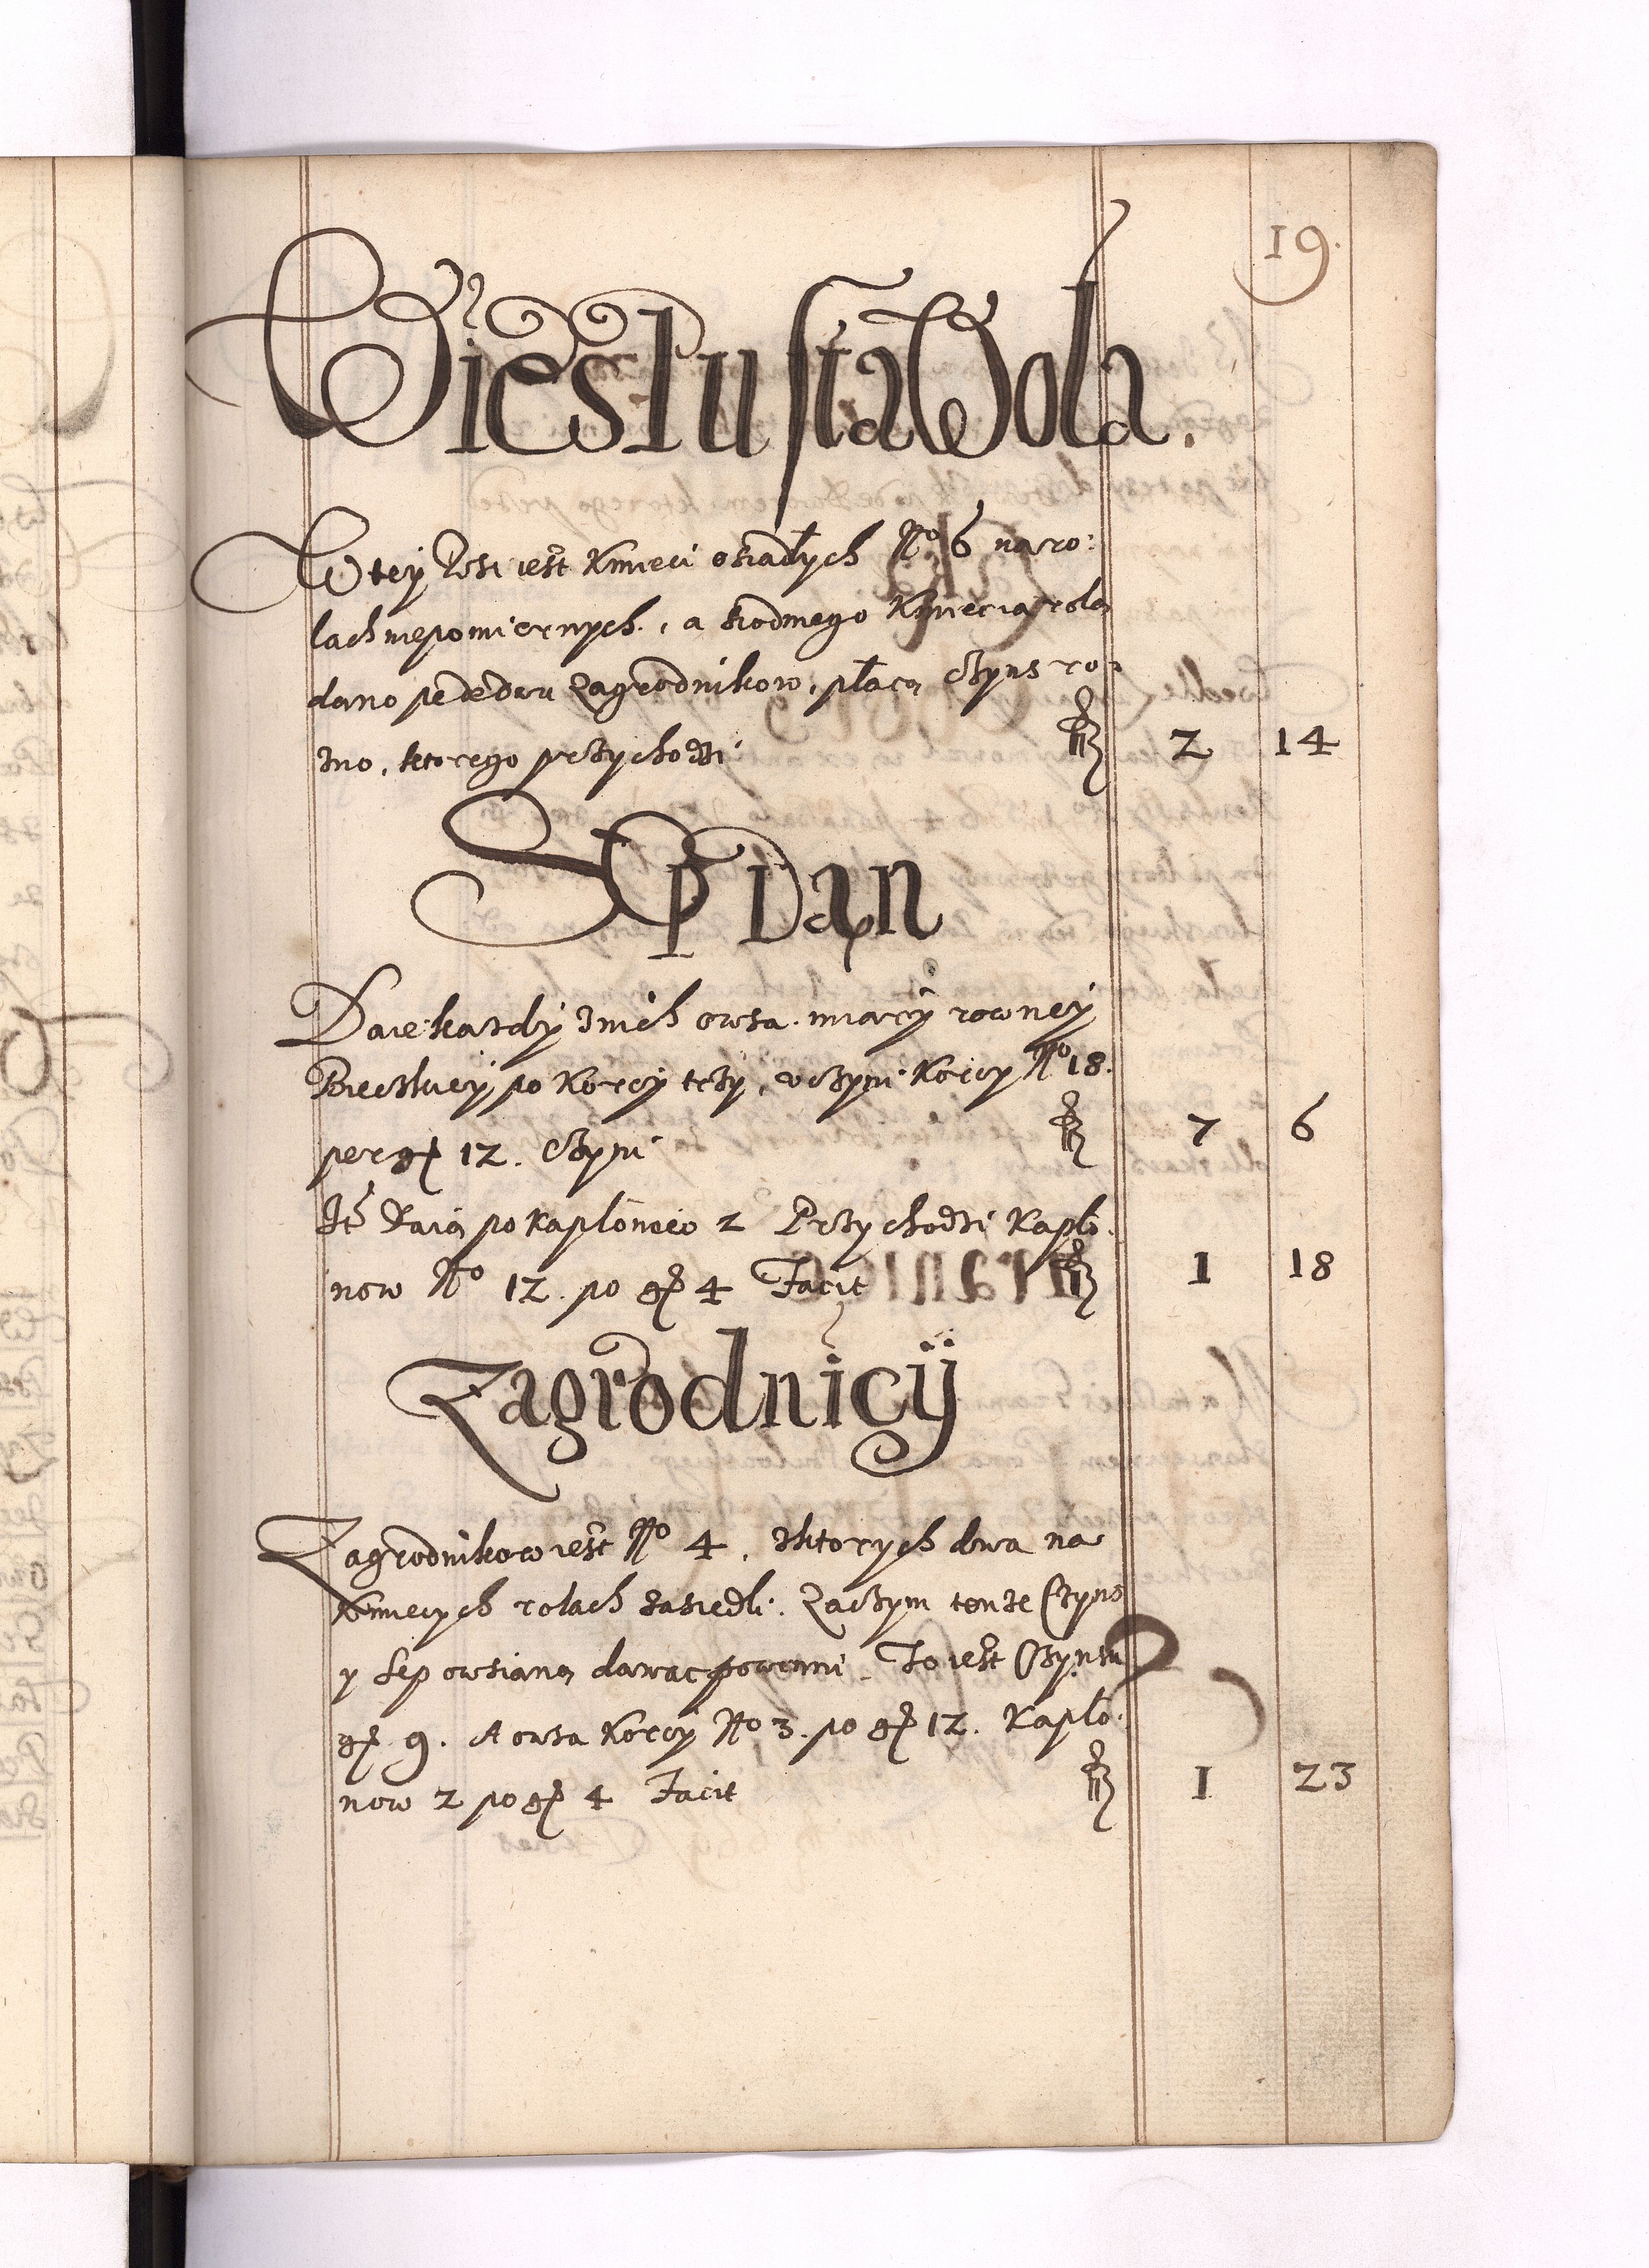 19.
Wieslusta Wola.
W tey Wsi iest Kmieci osiadlych No. 6 na ro:
lach niepomiernych, a siodmego Kmiecia rolą
dano dwu Zagrodnikow, płacą Czyns ro:
zno, ktorego przychodzi fl 2 14
Sp Dan
Daie kazdÿ znich owsa miarÿ rowneÿ
Bieckieÿ po Korcÿ trzÿ, uczÿni Korcÿ No 18.
per gr 12. Czyni fl 7 6
Ite Daią po kapłonow 2 Przychodzi Kapło:
now No 12. po gr 4 Facit fl 1 18
Zagrodnicÿ
Zagrodnikow iest No 4. Zktorych dwa na
Kmiecych rolach zasiedli. Zaczym tenze Czyns
y Sep owsianą dawac powinni. To iest Czynsu
gr 9. A owsa Korcÿ No 3. po gr 12. Kapło:
now 2 po gr 4 Facit fl 1 23